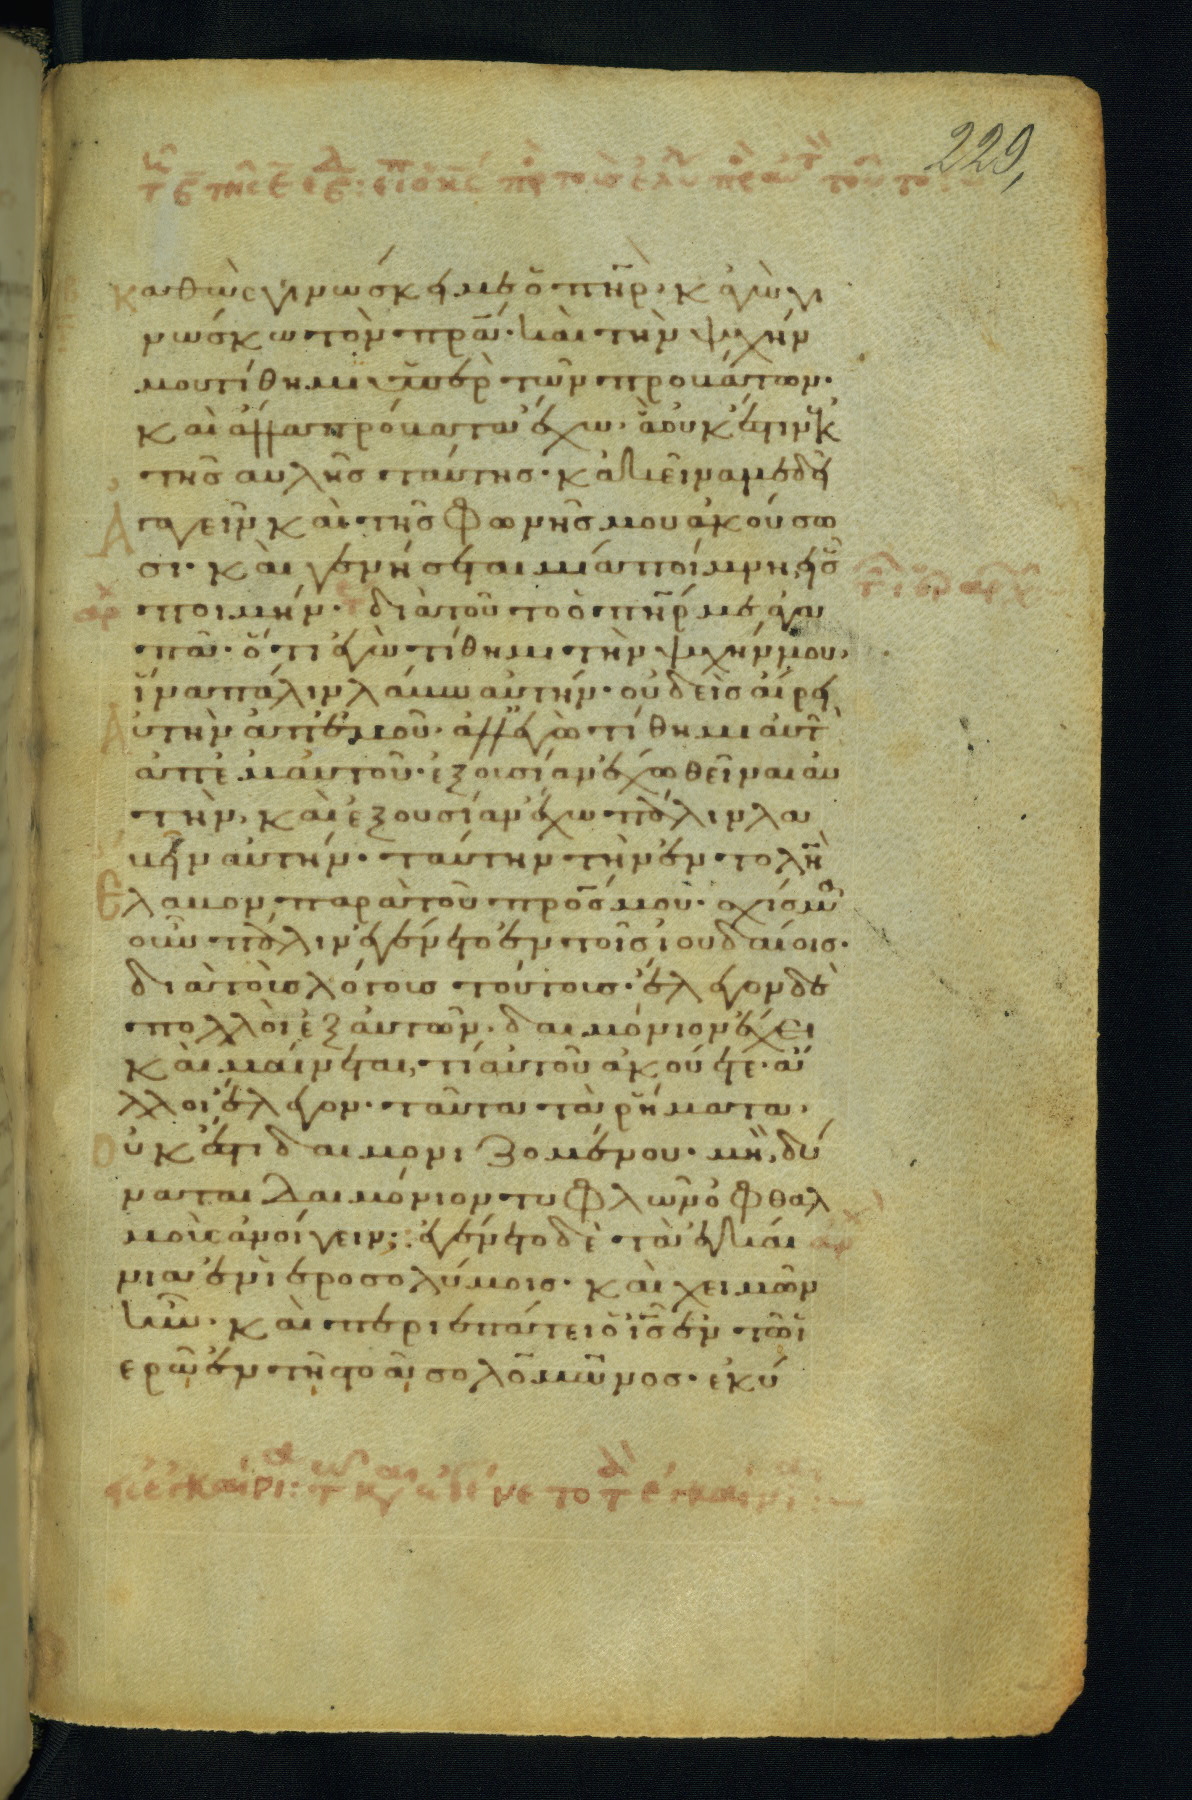 229,
καθὼς γινώσκει με ὁ πηρ· κἀγὼ γι
νώσκω τὸν πρα· καὶ τὴν ψυχήν
μου τίθημι ὑπὲρ τῶν προβάτων·
καὶ ἄλλα πρόβατα ἔχω· ἃ οὐκ ἔστιν ἐκ
τῆς αὐλῆς ταύτης· κἀκεῖνά με δεῖ
ἀγαγεῖν καὶ τῆς φωνῆς μου ἀκούσω
σι· καὶ γενήσεται μία ποίμνη, εἷς
ποιμήν· διὰ τοῦτο ὁ πηρ με ἀγα
πᾶ· ὅτι ἐγὼ τίθημι τὴν ψυχήν μου,
ἵνα πάλιν λάβω αὐτήν· οὐδεὶς αἴρει
αὐτὴν ἀπ' ἐμοῦ· ἀλλ' ἐγὼ τίθημι αὐτὴ
ἀπ' ἐμαυτοῦ· ἐξουσίαν ἔχω θεῖναι αὐ
τὴν, καὶ ἐξουσίαν ἔχω πάλιν λα
βεῖν αὐτήν· ταύτην τὴν ἐντολὴν
ἔλαβον παρὰ τοῦ πρός μου· σχίσμα
οὖν πάλιν ἐγένετο ἐν τοῖς ἰουδαίοις·
διὰ τοὺς λόγους τούτους· ἔλεγον δὲ
πολλοὶ ἐξ αὐτῶν· δαιμόνιον ἔχει
καὶ μαίνεται, τί αὐτοῦ ἀκούετε· ἄ
λλοι ἔλεγον· ταῦτα τὰ ῥήματα,
οὐκ ἔστι δαιμονιζομένου· μὴ, δύ
ναται δαιμόνιον τυφλῶν ὀφθαλ
μοὺς ἀνοίγειν; ἐγένετο δὲ τὰ ἐγκαί
νια ἐν ἱεροσολύμοις· καὶ χειμὼν
ἦν· καὶ περιεπάτει ὁ ις ἐν τῶ ἱ
ερῶ ἐν τῆ στοᾶ σολομῶνος· ἐκύ